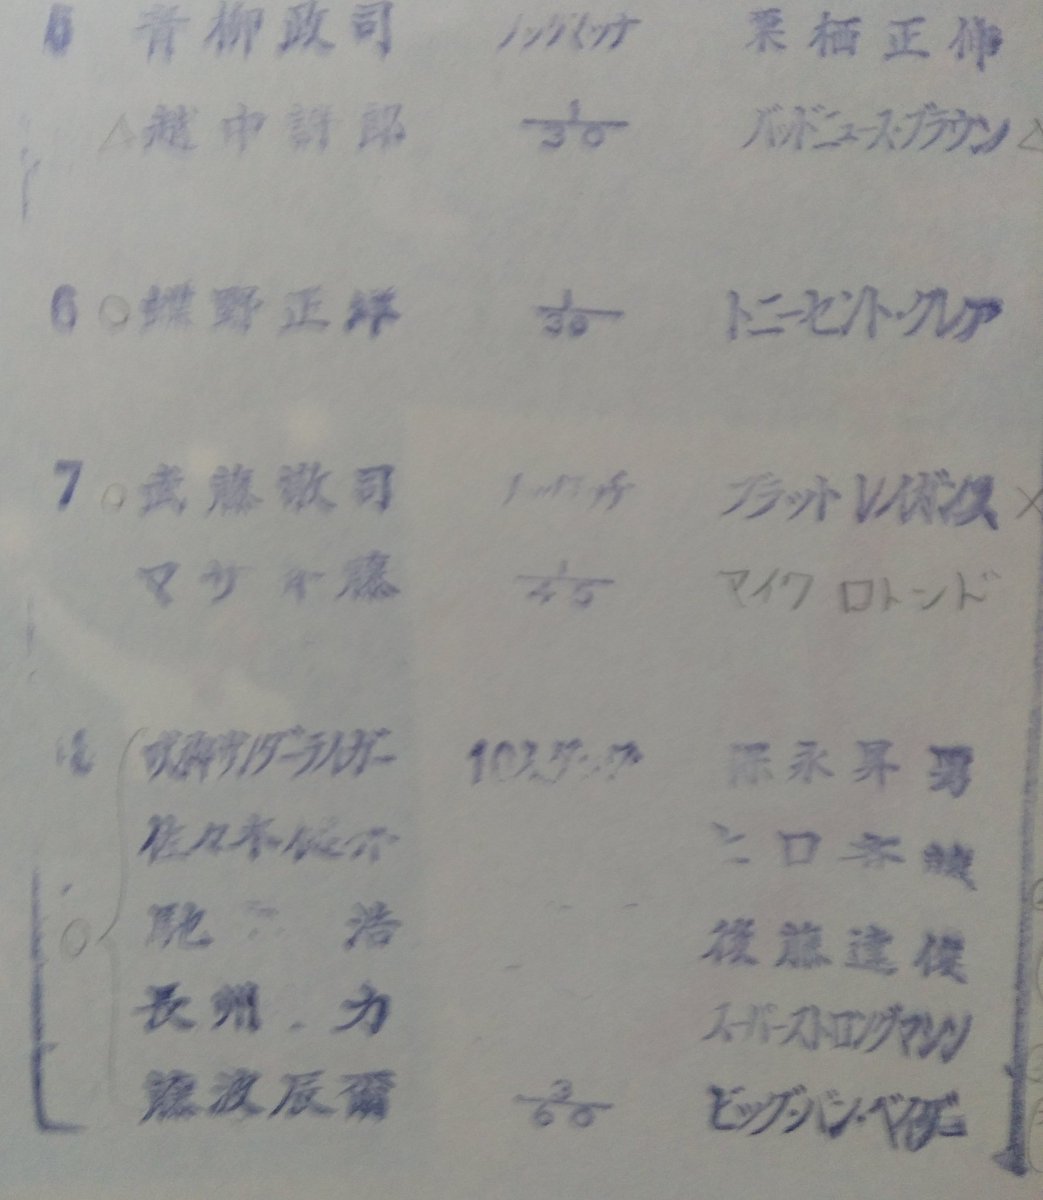 5 青柳政司 栗栖正伸
△越中詩郎 1/30 バッドニュース・ブラウン△
6 ○蝶野正洋 1/30 トニーセント・クレア
7 ○武藤敬司 ブラットレイガンス×
マサ斎藤 1/45 マイクロトンド
獣神サンダーライガー 10人タッグ 保永昇男
佐々木健介 ヒロ斎藤
馳 浩 後藤達俊
○
長州 力 スーパーストロングマシン
藤波辰爾 3/60 ビッグ・バン・ベイダー